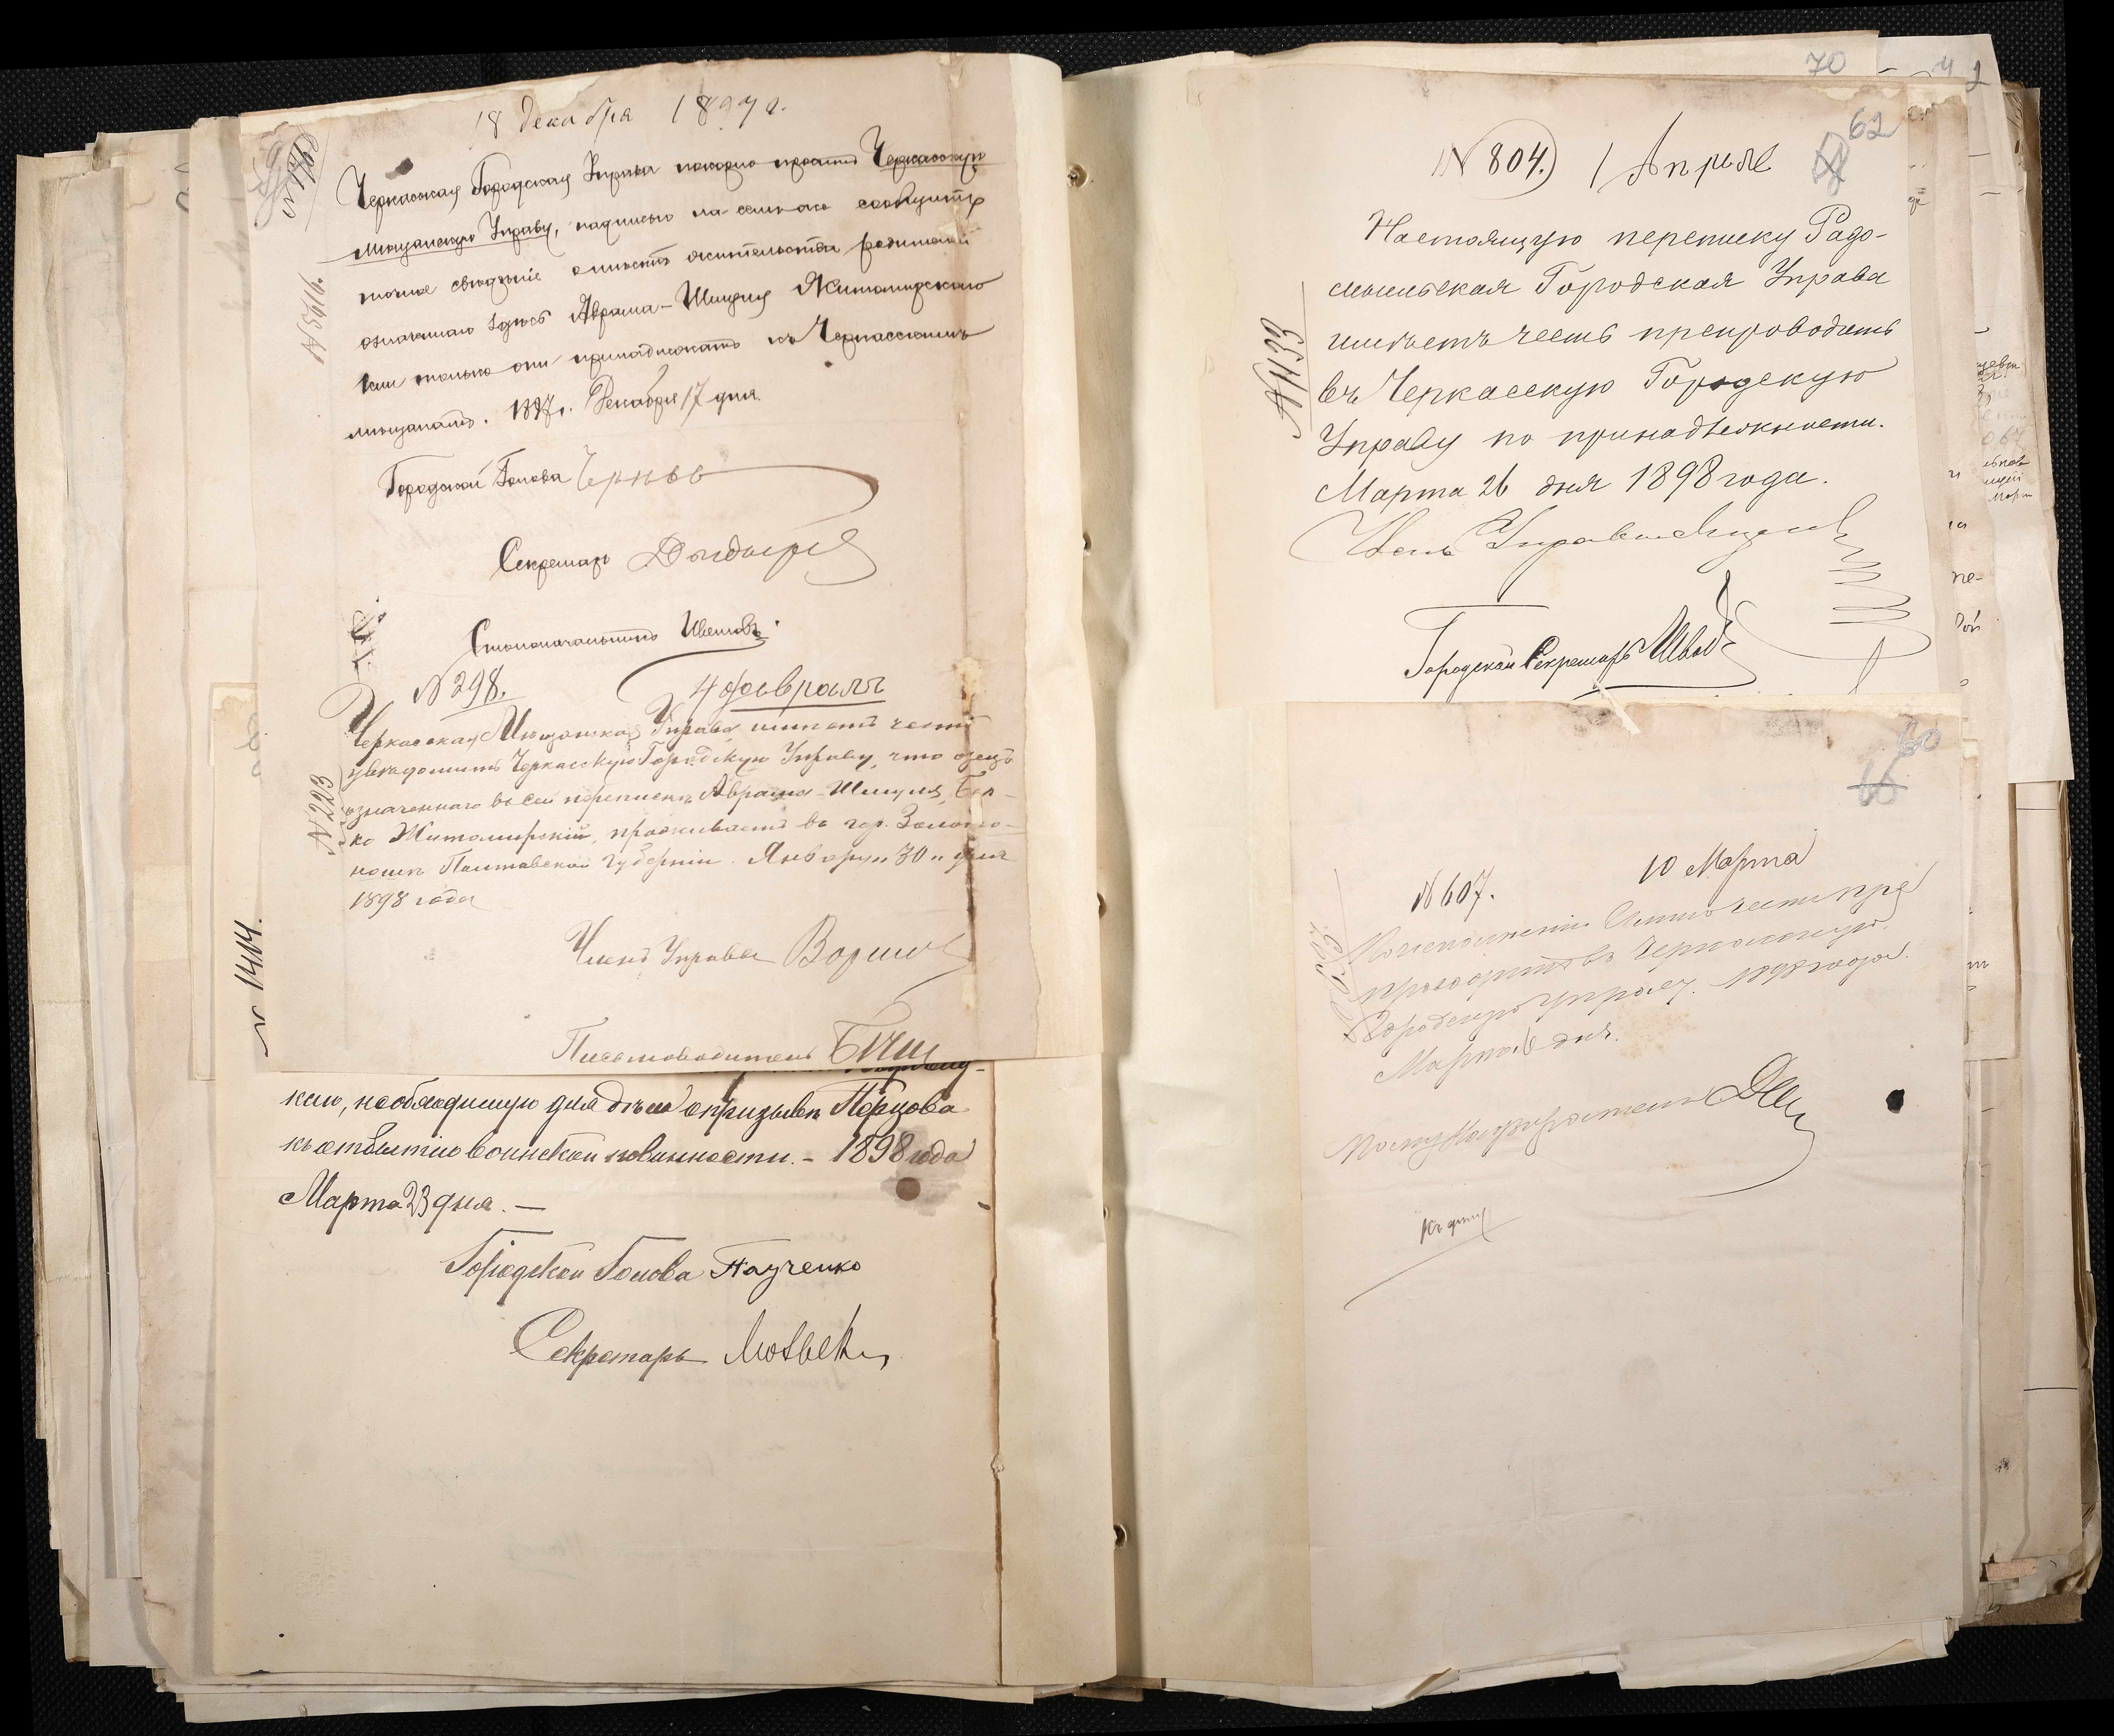 18 декабря 1897 г.
Черкасская Городская Управа покорно проситъ Черкасскую
Мѣщанскую Управу, надписью на семъ же сообщить
точное свѣдѣніе о мѣстѣ жительства родителей
означеннаго здѣсь Аврама-Шмуля Житомирскаго
если только они принадлежатъ къ Черкасскимъ
мѣщанамъ. 1897 г. Декабря 17 дня.
№ 5416
Городской Голова Черновъ
Секретарь
Столоначальникъ Ивановъ
№ 298. 4 февраля
Черкасская Мѣщанская Управа имѣетъ честь
увѣдомить Черкасскую Городскую Управу, что отецъ
означеннаго въ сей перепискѣ Аврама-Шмуля, Бер-
ко Житомирскій, проживаетъ въ гор. Золото-
ношѣ Полтавской губерніи. Января 30 дня
1898 года
№ 223
Членъ Управы
Письмоводитель
№ 1414.
кию, необходимую для дѣла о призывѣ Перцова
къ отбытію воинской повинности. – 1898 года
Марта 23 дня. —
Городской Голова Паученко
Секретарь
70
62
№ 804. 1 Апрѣля
Настоящую переписку Радо-
мысльская Городская Управа
имѣетъ честь препроводить
въ Черкасскую Городскую
Управу по принадлежности.
Марта 26 дня 1898 года.
№ 1139
Членъ Управы
Городской Секретарь
60
10 Марта
№ 607.
По исполненіи имѣю честь пре
проводить въ Черкасскую
Городскую Управу. 1898 года.
Марта 6 дня.
Къ дѣлу